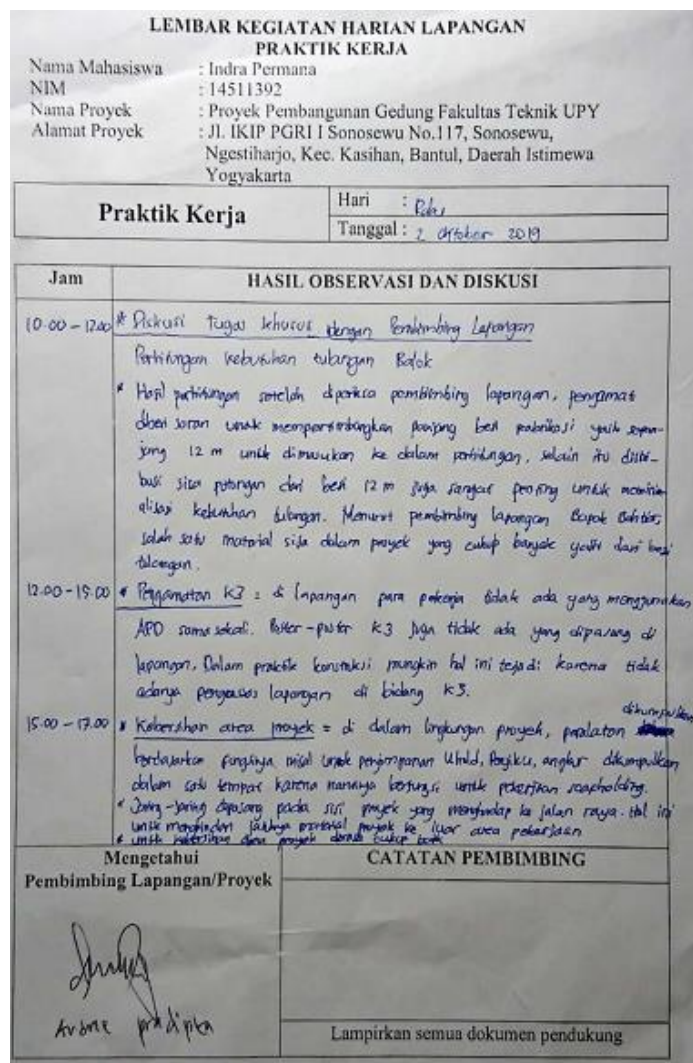 LEMBAR KEGIATAN HARIAN LAPANGAN
PRAKTIK KERJA
Nama Mahasiswa : Indra Permana
NIM : 14511392
Nama Proyek : Proyek Pembangunan Gedung Fakultas Teknik UPY
Alamat Proyek : Jl. IKIP PGRI I Sonosewu No.117, Sonosewu,
Ngestiharjo, Kec. Kasihan, Bantul, Daerah Istimewa
Yogyakarta
Praktik Kerja
Hari : Rabu
Tanggal : 2 Oktober 2019
Jam HASIL OBSERVASI DAN DISKUSI
10.00 - 12.00 * Diskusi Tugas khusus dengan Pembimbing Lapangan
Perhitungan kebutuhan tulangan Balok
* Hasil perhitungan setelah diperiksa pembimbing lapangan, pengamat
diberi saran untuk mempertimbangkan panjang besi pabrikasi yaitu sepan-
jang 12 m untuk dimasukan ke dalam perhitungan, selain itu distri-
busi sisa potongan dari besi 12 m juga sangat penting untuk meminim
alisasi kebutuhan tulangan. Menurut pembimbing lapangan Bapak
salah satu material sisa dalam proyek yang cukup banyak yaitu dari besi
tulangan.
12.00 - 15.00 * Pengamatan K3 = di lapangan para pekerja tidak ada yang menggunakan
APD sama sekali. Poster-poster K3 juga tidak ada yang dipasang di
lapangan, Dalam praktik konstruksi mungkin hal ini terjadi karena tidak
adanya pengawas lapangan di bidang K3.
15.00 - 17.00 * Kebersihan area proyek = di dalam lingkungan proyek, peralatan dikumpulkan
berdasarkan fungsinya, misal untuk penyimpanan dikumpulkan
dalam satu tempat karena nantinya berfungsi untuk pekerjaan scapholding.
* Jaring-jaring dipasang pada sisi proyek yang menghadap ke jalan raya. Hal ini
untuk menghindari jatuhnya material proyek ke luar area pekerjaan
* untuk kebersihan area proyek cukup baik
Mengetahui
Pembimbing Lapangan/Proyek
CATATAN PEMBIMBING
pradipta
Lampirkan semua dokumen pendukung